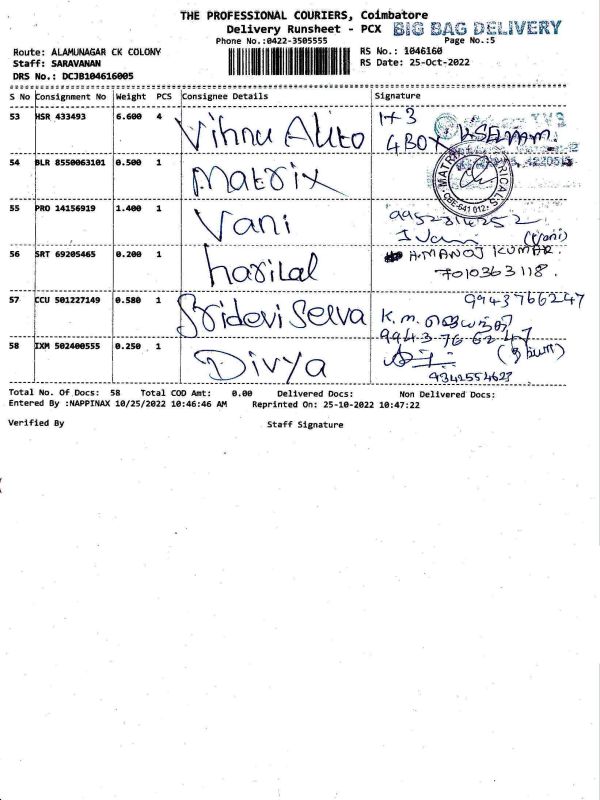 THE PROFESSIONAL COURIERS, Coimbatore
Delivery Runsheet - PCX BIG BAG DELIVERY
Phone No.:0422-3505555 Page No.:5
Route: ALAMUNAGAR CK COLONY RS No.: 1046160
Staff: SARAVANAN RS Date: 25-Oct-2022
DRS No.: DCJB104616005
S No Consignment No Weight PCS Consignee Details Signature
53 HSR 433493 6.600 4 Vihnu Auto 1+3
4 BOX K.SELVAM.
54 BLR 8550063101 0.500 1 Matrix
55 PRO 14156919 1.400 1 Vani 9952814252
J Vani (vani)
56 SRT 69205465 0.200 1 harilal A.MANOJ KUMAR.
7010363118.
57 CCU 501227149 0.580 1 Sridevi Selva 9943766247
K.m. ஜெயந்தி
9943766247
58 IXM 502400555 0.250 1 Divya
9342554623
Total No. Of Docs: 58 Total COD Amt: 0.00 Delivered Docs: Non Delivered Docs:
Entered By :NAPPINAX 10/25/2022 10:46:46 AM Reprinted On: 25-10-2022 10:47:22
Verified By Staff Signature